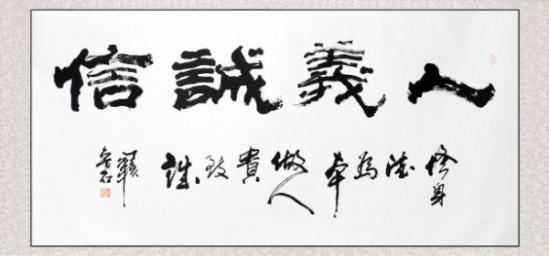 人義誠信
修身德為本做人貴致誠